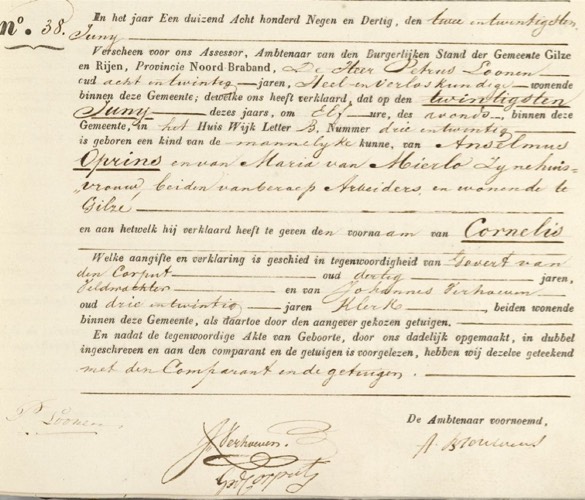 No. 38.
In het jaar Een duizend Acht honderd Negen en Dertig, den twee en twintigsten
Juny
Verscheen voor ons Assessor, Ambtenaar van den Burgerlijken Stand der Gemeente Gilze
en Rijen, Provincie Noord-Braband, De Heer Petrus Loonen
oud acht en twintig jaren, Heel en Verloskundige wonende
binnen deze Gemeente; dewelke ons heeft verklaard, dat op den twintigsten
Juny dezes jaars, om Elf ure, des avonds, binnen deze
Gemeente, in het Huis Wijk Letter B. Nummer drie en twintig
is geboren een kind van de mannelyke kunne, van Anselmus
Oprins en van Maria van Mierlo Zynehuis-
vrouw, beiden van beroep Arbeiders, en wonende te
Gilze
en aan hetwelk hij verklaard heeft te geven den voornaam van Cornelis
Welke aangifte en verklaring is geschied in tegenwoordigheid van Govert van
den Corput oud dertig jaren,
Veldwachter en van Johannes Verhoeven
oud drie en twintig jaren Klerk, beiden wonende
binnen deze Gemeente, als daartoe door den aangever gekozen getuigen.
En nadat de tegenwoordige Akte van Geboorte, door ons dadelijk opgemaakt, in dubbel
ingeschreven en aan den comparant en de getuigen is voorgelezen, hebben wij dezelve geteekend
met den Comparant en de getuigen.
De Ambtenaar voornoemd,
P. Loonen
J. Verhoeven.
Corput